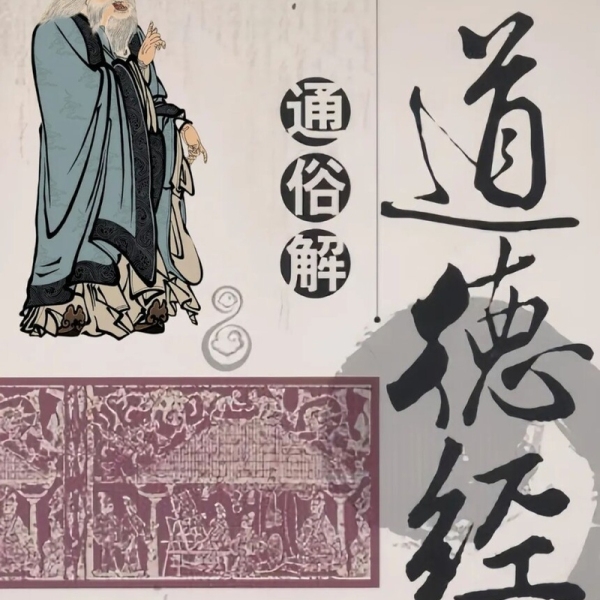 道德经
通俗解